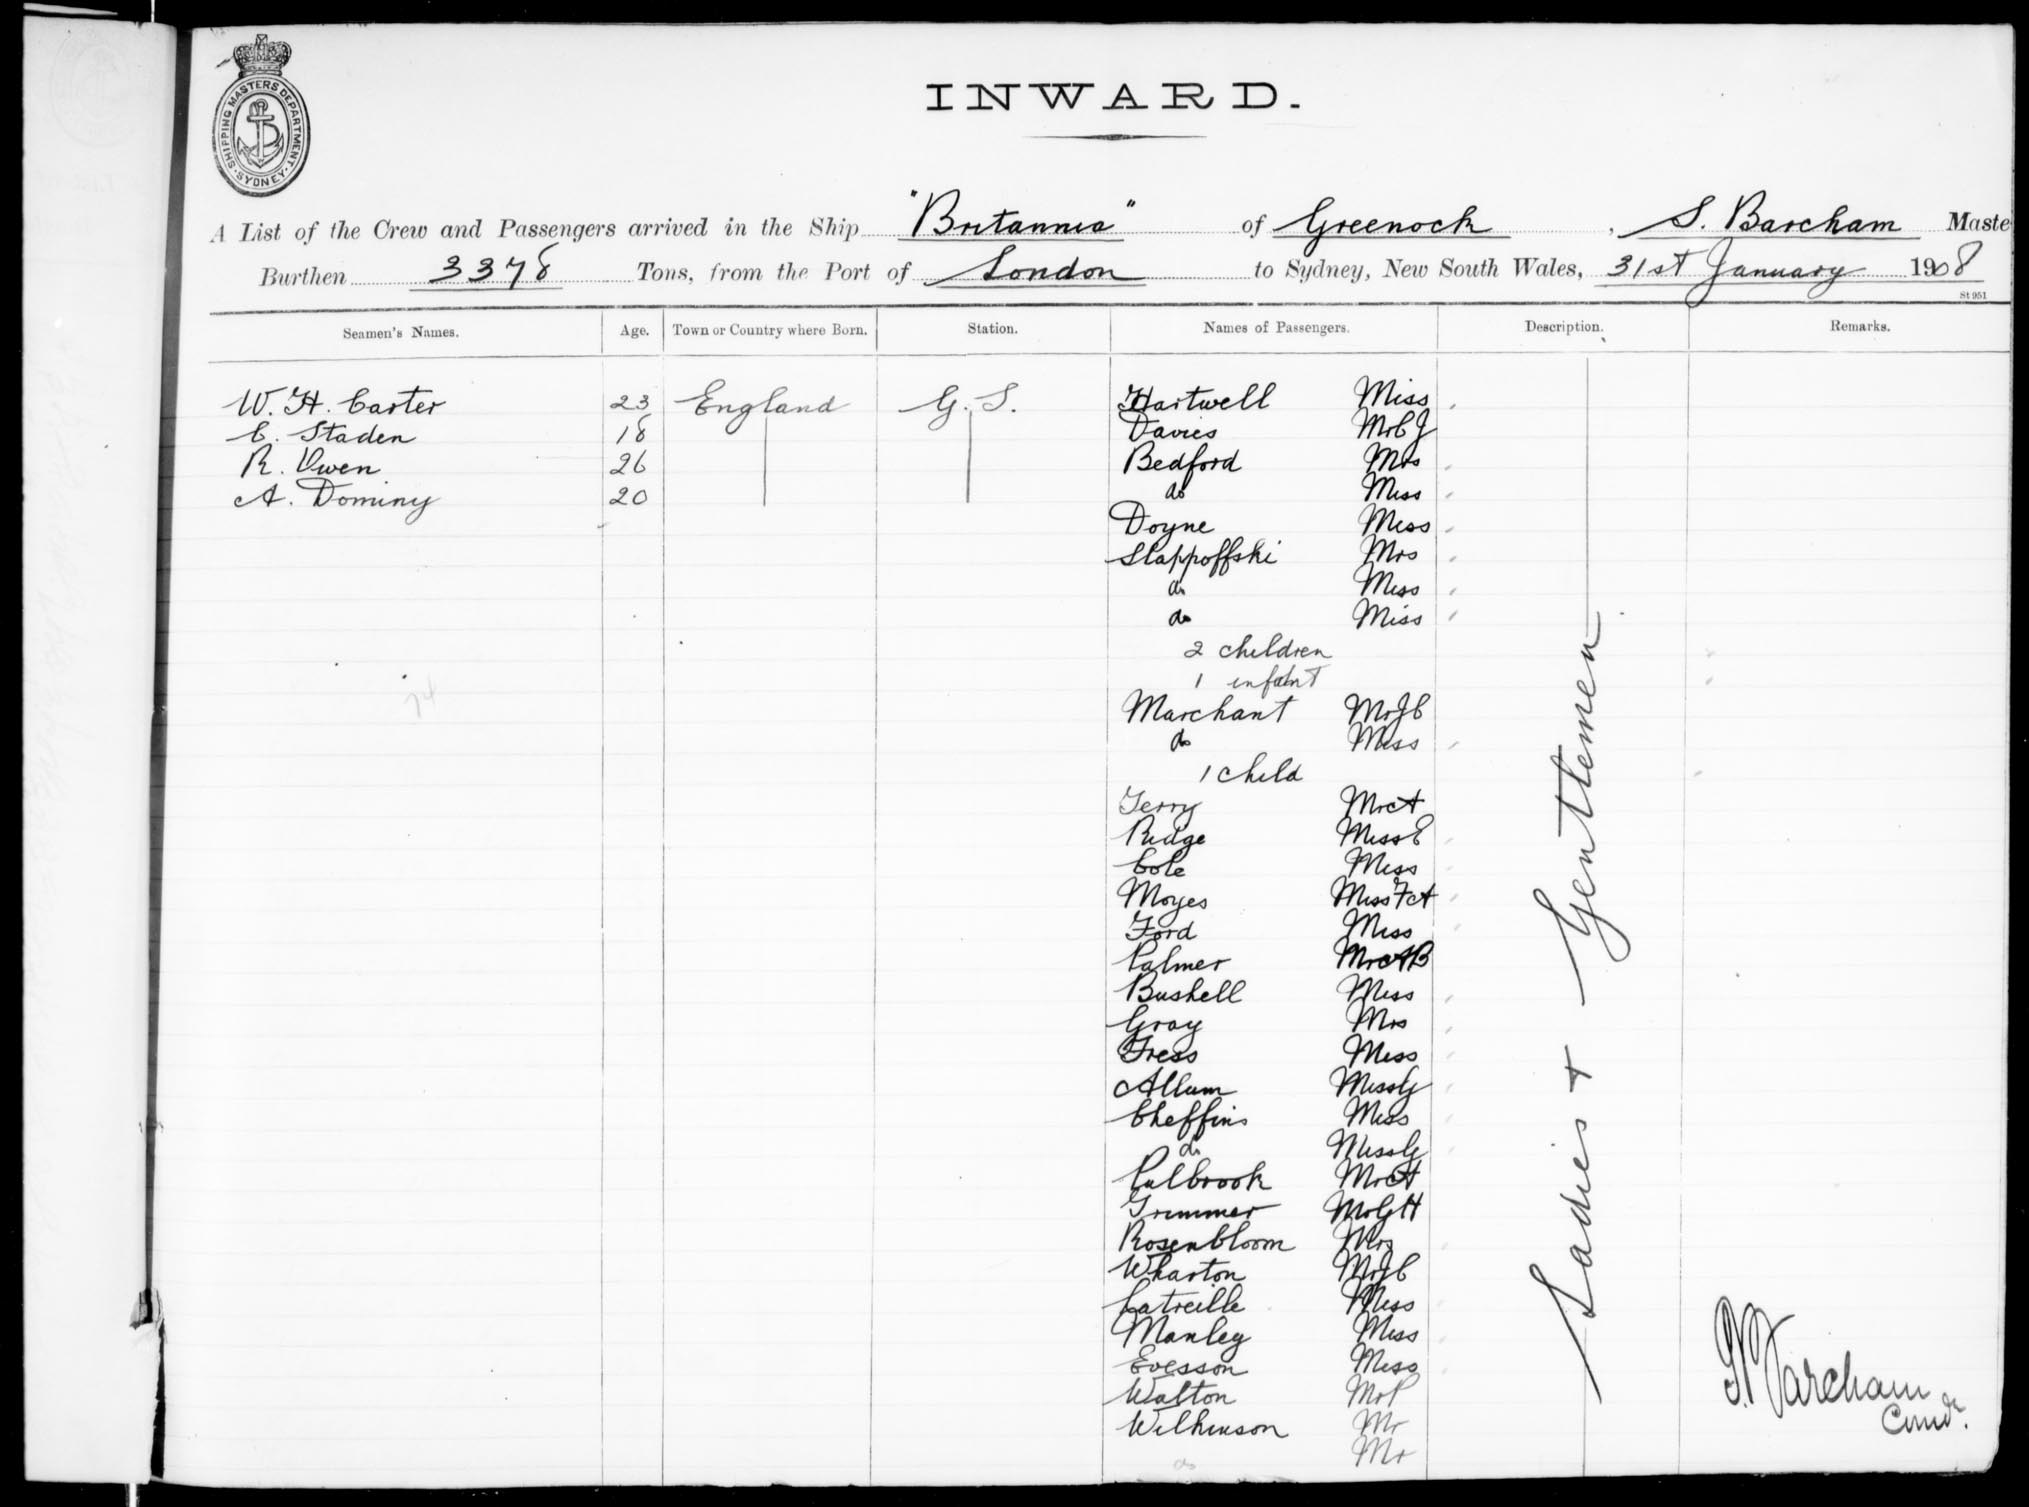 SHIPPING MASTERS DEPARTMENT. SYDNEY.
INWARD.
A List of the Crew and Passengers arrived in the Ship "Britannia" of Greenock, S. Barcham Maste
Burthen 3378 Tons, from the Port of London to Sydney, New South Wales, 31st January 1908
St 951
Seamen's Names. Age. Town or Country where Born. Station. Names of Passengers. Description. Remarks.
W. H. Carter 23 England G. S. Hartwell Miss
C. Staden 18 Davies Mr C J
R. Owen 26 Bedford Mrs
A. Dominy 20 do Miss
Doyne Miss
Slappoffski Mrs
do Miss
do Miss
2 children
1 infant
Marchant Mr J C
do Miss
1 child
Terry Mr A
Ridge Miss E
Cole Miss
Moyes Miss F A
Ford Miss
Palmer Mr A B
Bushell Miss
Gray Mrs
Tress Miss
Allum Miss G
Cheffins Miss
do Miss G
Pulbrook Mr A
Grimmer Mr G H
Rosenbloom Mrs
Wharton Mr J C
Latreille Miss
Manley Miss
Evesson Miss
Walton Mr P
Wilkinson Mr
do Mr
Ladies + Gentlemen
S. Barcham
Comdr.
74